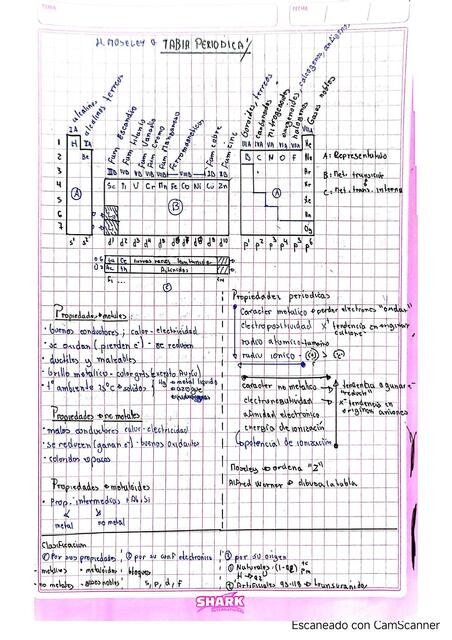 H MOSELEY TABLA PERIODICA
alcalinos
alcalinos terreos
Fam escandio
Fam titanio
Fam Vanadio
Fam Cromo
Fam Manganeso
Ferromagneticos
Fam cobre
Fam cinc
Boroides, terreos
carbonoides
nitrogenoides
anfigenos
halogenos
Gases nobles
IA
IIA
IIIB IVB VB VIB VIIB VIIIB IB IIB
IIIA IVA VA VIA VIIA VIIIA
1 H He
2 Be B C N O F Ne
3 Ar
4 Sc Ti V Cr Mn Fe Co Ni Cu Zn Kr
5 Xe
6 Rn
7 Og
A B A
A: Representativo
B: met. transición
C: met. trans. interna
s¹ s² d¹ d² d³ d⁴ d⁵ d⁶ d⁷ d⁸ d⁹ d¹⁰ p¹ p² p³ p⁴ p⁵ p⁶
La Ce
Ac Th Actinidos
Propiedades metales:
· buenos conductores; calor - electricidad
· se oxidan (pierden e⁻) se reducen
· ductiles y maleables
· brillo metalico - color gris (excepto Au, Cu)
· Tº ambiente 25ºC solidos
Hg metal liquido
azogue
Propiedades no metales
· malos conductores calor - electricidad
· se reducen (ganan e⁻) - buenos oxidantes
· coloridos opacos
Propiedades metaloides
· Prop. intermedias
metal no metal
Propiedades periodicas
Caracter metalico perder electrones "oxidar"
electropositividad X⁺ tendencia en originar cationes
radio atomico - tamaño
radio ionico
caracter no metalico tendencia a ganar e⁻ "reducir"
electronegatividad X⁻ tendencia en originar aniones
afinidad electronica
energia de ionización
(potencial de ionización)
Moseley ordena "Z"
Alfred Werner dibuja la tabla
Clasificacion
① Por sus propiedades
· metales · metaloides
· no metales · gases nobles
② por su conf electronica
bloques
s, p, d, f
③ por su origen
① Naturales (1-92)
② Artificiales 93-118 transuranido
SHARK
Escaneado con CamScanner